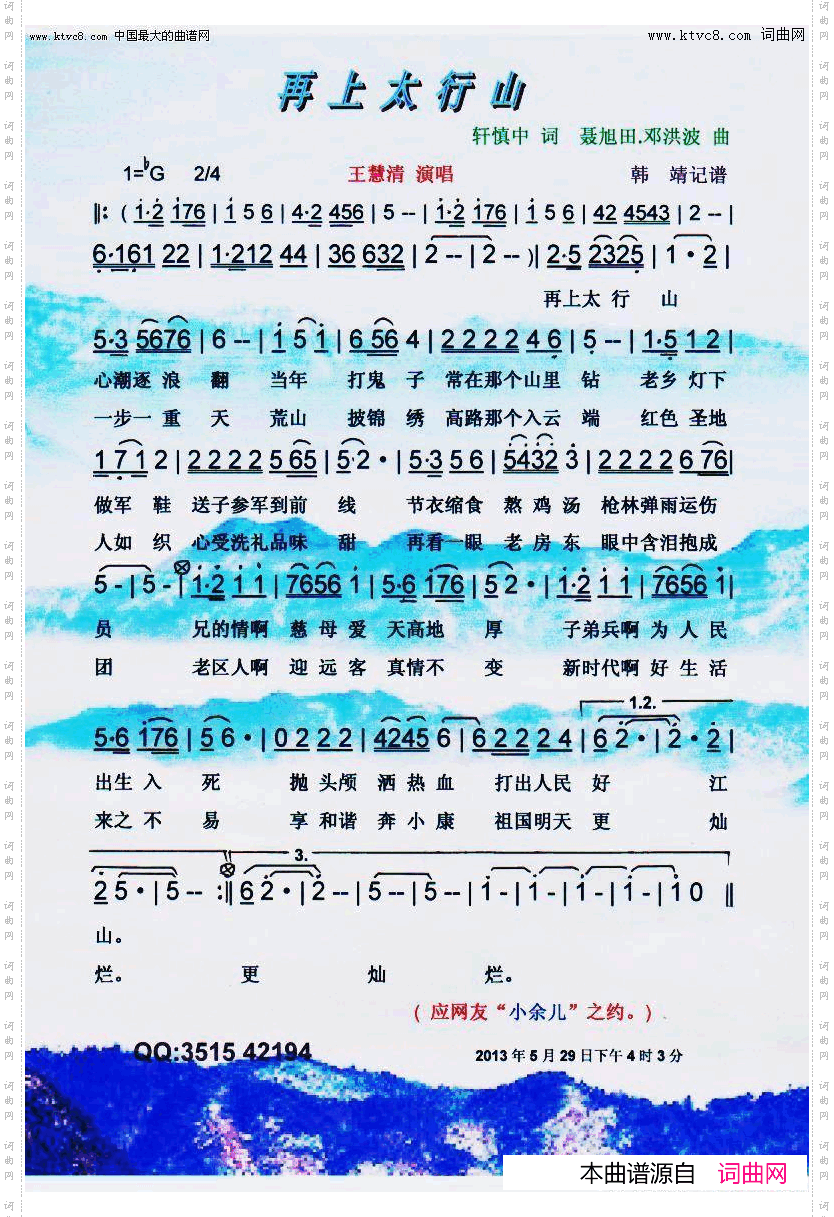 www.ktvc8.com 中国最大的曲谱网
www.ktvc8.com 词曲网
再上太行山
轩慎中 词 聂旭田.邓洪波 曲
1=♭G 2/4 王慧清 演唱 韩 靖记谱
‖: ( 1·2 176 | 1 5 6 | 4·2 456 | 5 -- | 1·2 176 | 1 5 6 | 42 4543 | 2 -- |
6·161 22 | 1·212 44 | 36 632 | 2 -- | 2 -- )| 2·5 2325 | 1 · 2 |
再上太 行 山
5·3 5676 | 6 -- | 1 5 1 | 6 56 4 | 2 2 2 2 4 6 | 5 -- | 1·5 1 2 |
心潮逐 浪 翻 当年 打鬼 子 常在那个山里 钻 老乡 灯下
一步一 重 天 荒山 披锦 绣 高路那个入云 端 红色 圣地
1 7 1 2 | 2 2 2 2 5 65 | 5·2 · | 5·3 5 6 | 5432 3 | 2 2 2 2 6 76 |
做军 鞋 送子参军到前 线 节衣缩食 熬 鸡 汤 枪林弹雨运伤
人如 织 心受洗礼品味 甜 再看一眼 老 房 东 眼中含泪抱成
5 - | 5 - | 1·2 1 1 | 7656 1 | 5·6 176 | 5 2 · | 1·2 1 1 | 7656 1 |
员 兄的情啊 慈 母 爱 天高地 厚 子弟兵啊 为 人 民
团 老区人啊 迎 远 客 真情不 变 新时代啊 好 生 活
1.2.
5·6 176 | 5 6 · | 0 2 2 2 | 4245 6 | 6 2 2 2 4 | 6 2 · | 2 · 2 |
出生 入 死 抛 头颅 洒 热 血 打出人民 好 江
来之 不 易 享 和谐 奔 小 康 祖国明天 更 灿
3.
2 5 · | 5 -- :‖ 6 2 · | 2 -- | 5 -- | 5 -- | 1 - | 1 - | 1 - | 1 - | 1 0 ‖
山。
烂。 更 灿 烂。
( 应网友“小余儿”之约。)
QQ:3515 42194
2013 年 5 月 29 日下午 4 时 3 分
本曲谱源自 词曲网